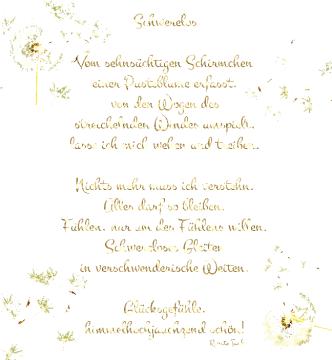 Schwerelos
Vom sehnsüchtigen Schirmchen
einer Pusteblume erfasst,
von den Wogen des
streichelnden Windes umspült,
lasse ich mich wehen und treiben.
Nichts mehr muss ich verstehn.
Alles darf so bleiben.
Fühlen, nur um des Fühlens willen.
Schwereloses Gleiten
in verschwenderische Weiten.
Glücksgefühle,
himmelhochjauchzend schön!